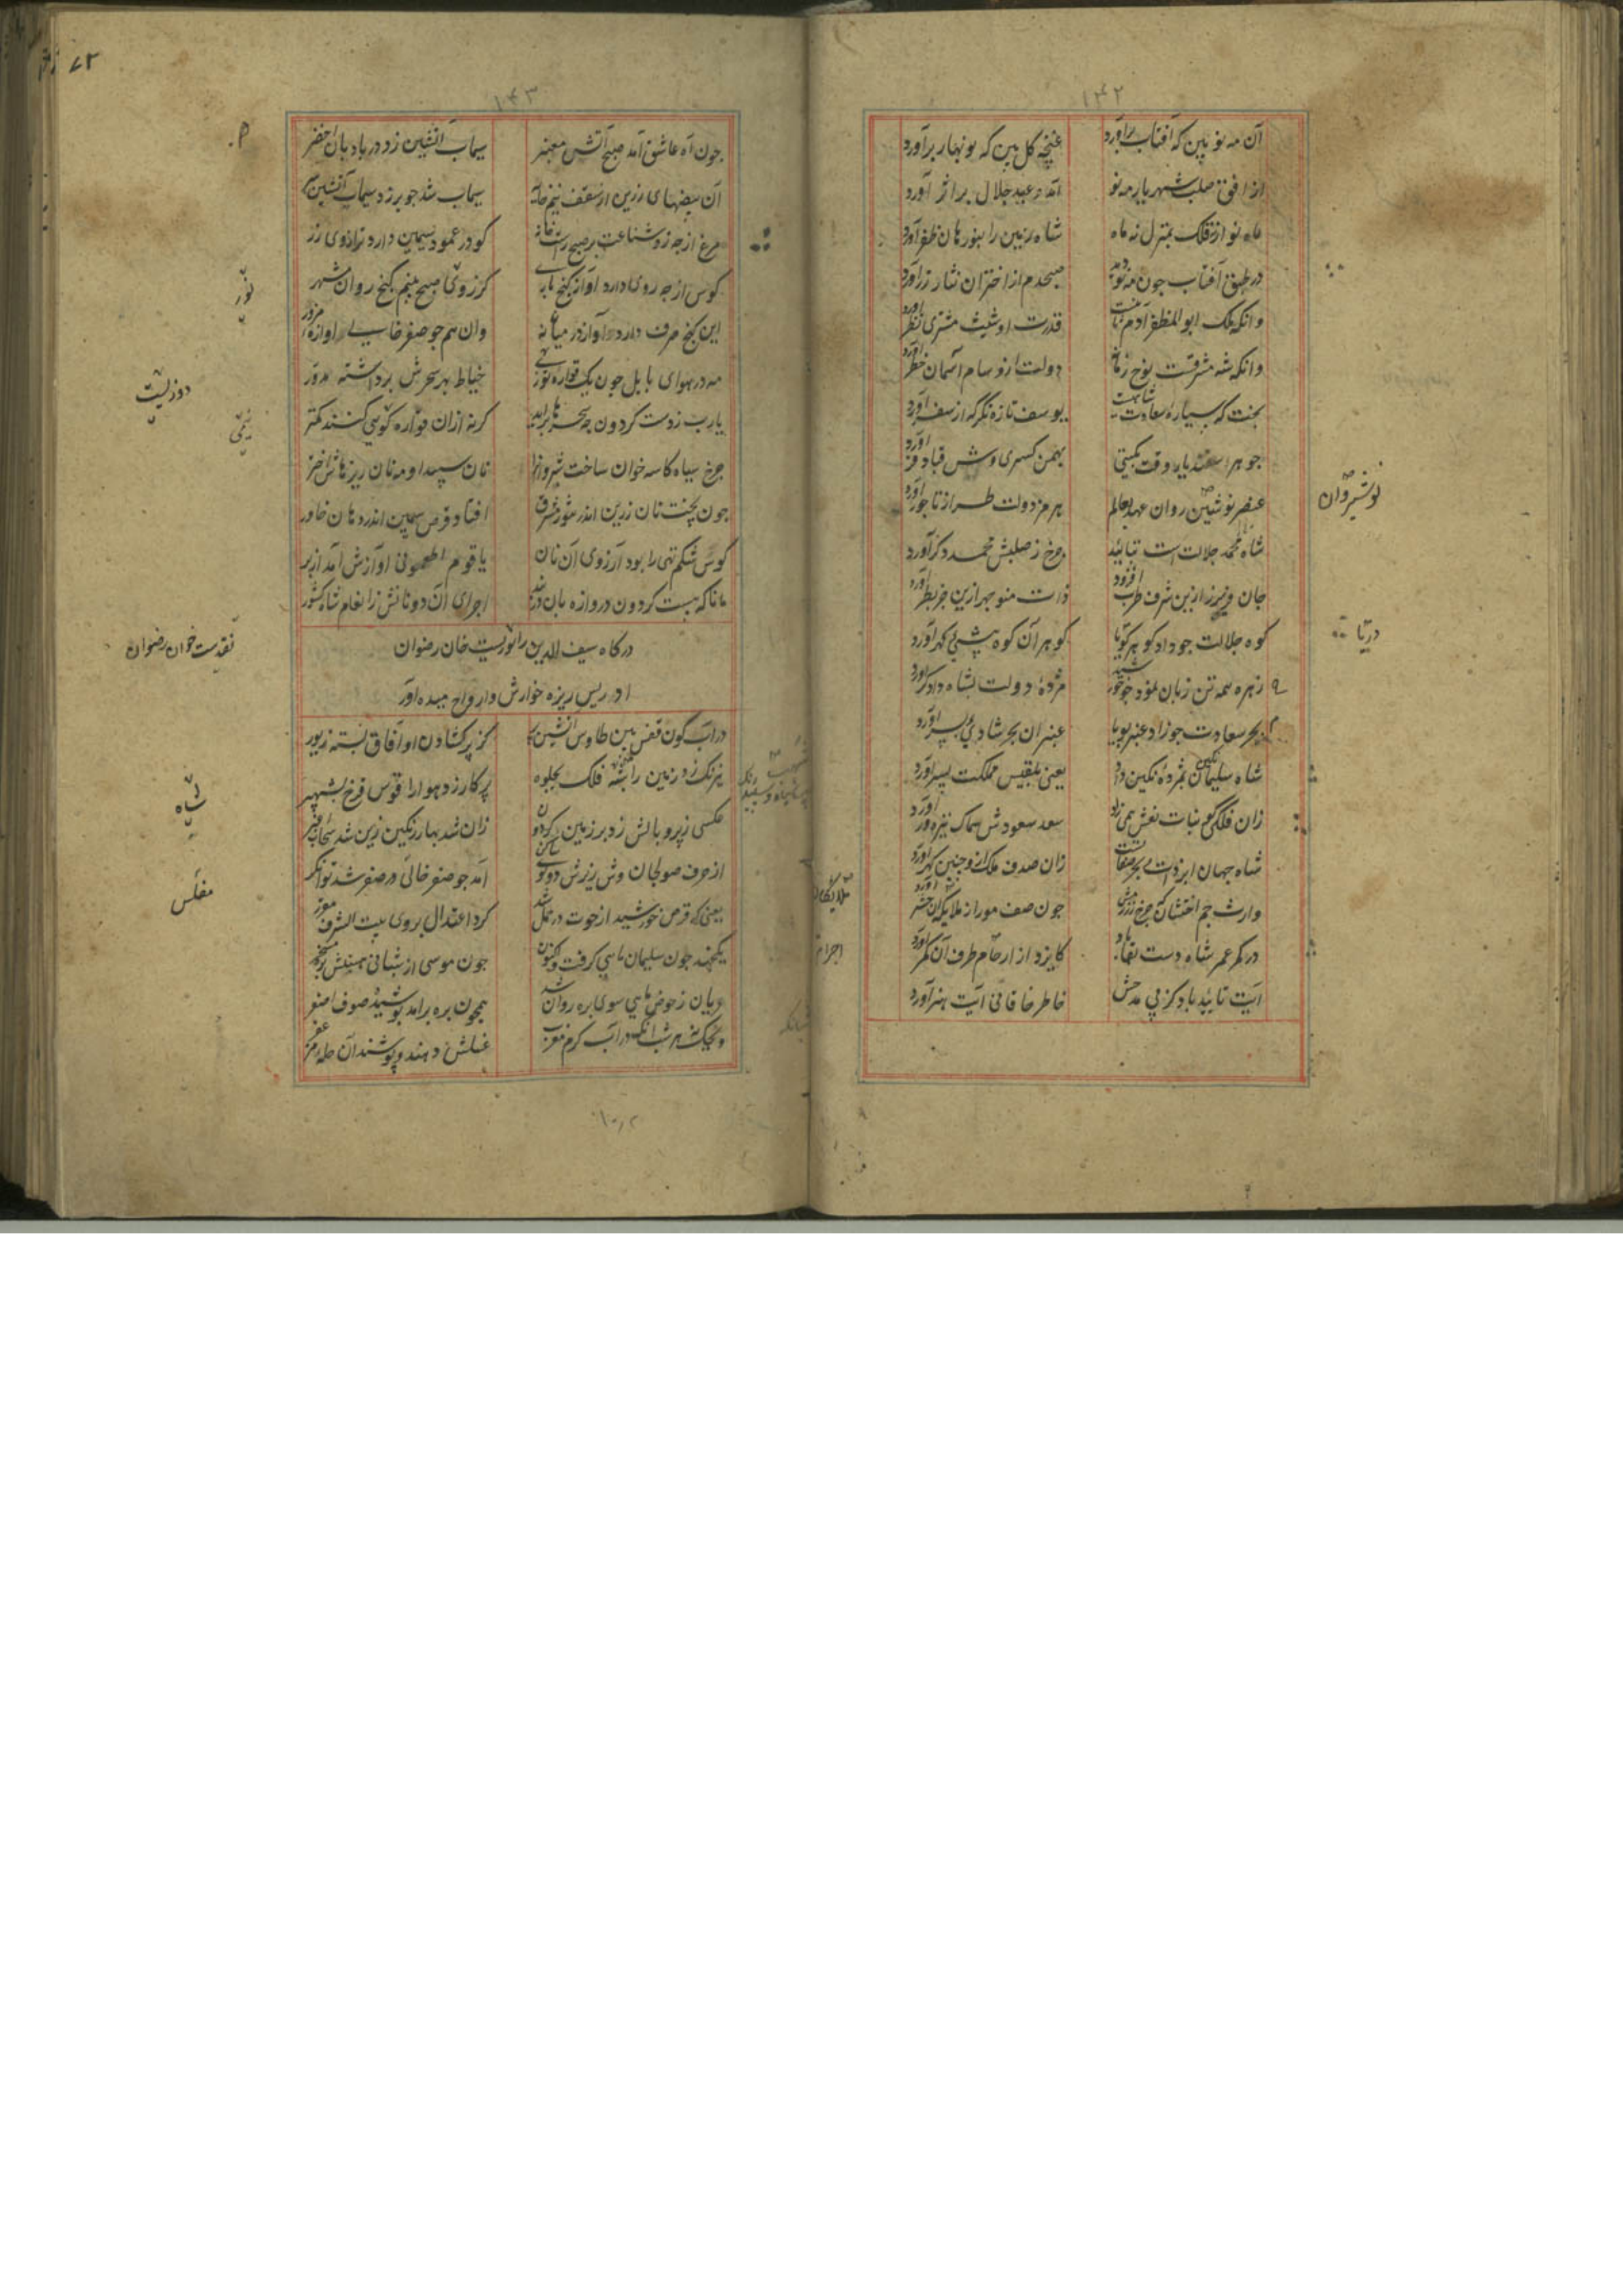 ۱۴۲
آن مه نو بین که آفتاب برآورد
غنچه کل بین که نوبهار برآورد
از افق صلب شهریار مه نو
آمد و عید جلال بر اثر آورد
ماه نو از فلک بمنزل نه ماه
شاه زمین را بنورهان ظفر آورد
در طبق آفتاب چون مه نو دید
صبحدم از اختران نثار زر آورد
وانکه ملک ابوالمظفر آدم ثانیست
قدرت او شیث مشتری نظر آورد
وانکه شه مشرقست نوح زمان
دولت ازو سام آسمان خطر آورد
بخت که سیاره سعادت شاهست
یوسف تازه نکر که از سفر آورد
جوهر اسفندیار وقت بکیتی
بهمن کسری وش قباد فر آورد
عنصر نوشین روان عهد بعالم
هرمز دولت طراز تاجور آورد
شاه محمد جلالت است بتایید
چرخ ز صلبش محمد دکر آورد
جان فریبرز ازین شرف طرب افزود
ذات منوچهر ازین خبر بطر آورد
کوه جلالت چو داد کوهر کویا
کوهر آن کوه پشیی کهر آورد
زهره همه تن زبان نمود چو خورشید
مژده دولت بشاه دادکر آورد
بحر سعادت چو زاد عنبر بویا
عنبر آن بحر شادی پسر آورد
شاه سلیمان نکین بمژده نکین داد
یعنی بلقیس مملکت پسر آورد
زان فلکی کو بنات نعش همی زاد
سعد سعودش سماک نیزه ور آورد
شاه جهان ابر ذات بحر صفاتست
زان صدف ملک ازو چنین کهر آورد
وارث جم اخستان که چرخ زرزمش
چون صف مور از ملایکان حشر آورد
در کمر عمر شاه دست بقا باد
کایزد از ارحام طرف آن کمر آورد
آیت تایید باد کز پی مدحش
خاطر خاقانی آیت هنر آورد
نوشیروان
دریا
ملایکان
اجرام
۱۴۳
چون آه عاشق آمد صبح آتش معنبر
سیماب آتشین زد در بادبان اخضر
آن بیضهای زرین از سقف نیم خانه
سیماب شد چو برزد سیماب آتشین سر
مرغ از چه زد شناعت بر صبح راست خانه
کو در عمود سیمین دارد ترازوی زر
کوس از چه روی دارد آواز کنج یابی
کز روی صبح بینم کنج روان شهر
این کنج صرف دارد و آواز در میان نه
وان هم چو صفر خالی و اوازه مزور
مه در هوای بابل چون یک قواره توزی
خیاط بهر سحرش برداشته مدور
یارب ز دست کردون چه سحرها برآید
کرنه ازان قواره کوسی کنند کمتر
چرخ سیاه کاسه خوان ساخت شبروانرا
نان سپید او مه نان ریزهاش اختر
چون پخت نان زرین اندر تنور مشرق
افتاد قرص سیمین اندر دهان خاور
کوس شکم تهی را بود آرزوی آن نان
یا قوم اطعمونی آوازش آمد از بر
مانا که هست کردون دروازه بان دربند
اجرای آن دو نانش ز انعام شاه کشور
درکاه سیف الدین را نورسیت خان رضوان
ادریس ریزه خوارش و ارواح میده آور
در آب کون قفس بین طاوس آتشین پر
کز پر کشادن او آفاق بسته زیور
نیرنک زد زمین را بنفشه فلک بجلوه
پرکار زد هوا را قوس قزح بشهپر
عکسی ز پر و بالش زد بر زمین و کردون
زان شد بهار رنکین زین شد سحاب عنبر
از حرف صولجان وش زیرش دو کوی ساکن
آمد چو صفر خالی در صفر شد توانکر
یعنی که قرص خورشید از حوت در حمل شد
کرد اعتدال بروی بیت الشرف مقرر
یکچند چون سلیمان ماهی کرفت و اکنون
چون موسی از شبانی هستش بره مسخر
عریان ز حوض ماهی سوی بره روان شد
همچون بره برآمد پوشیده صوف اصفر
ویحک نه هر شبانکه در آب کرم مغرب
غسلش دهند و پوشند آن حله مزعفر
دوزیست
تقدیست خوان رضوان
سیاه
مفلس